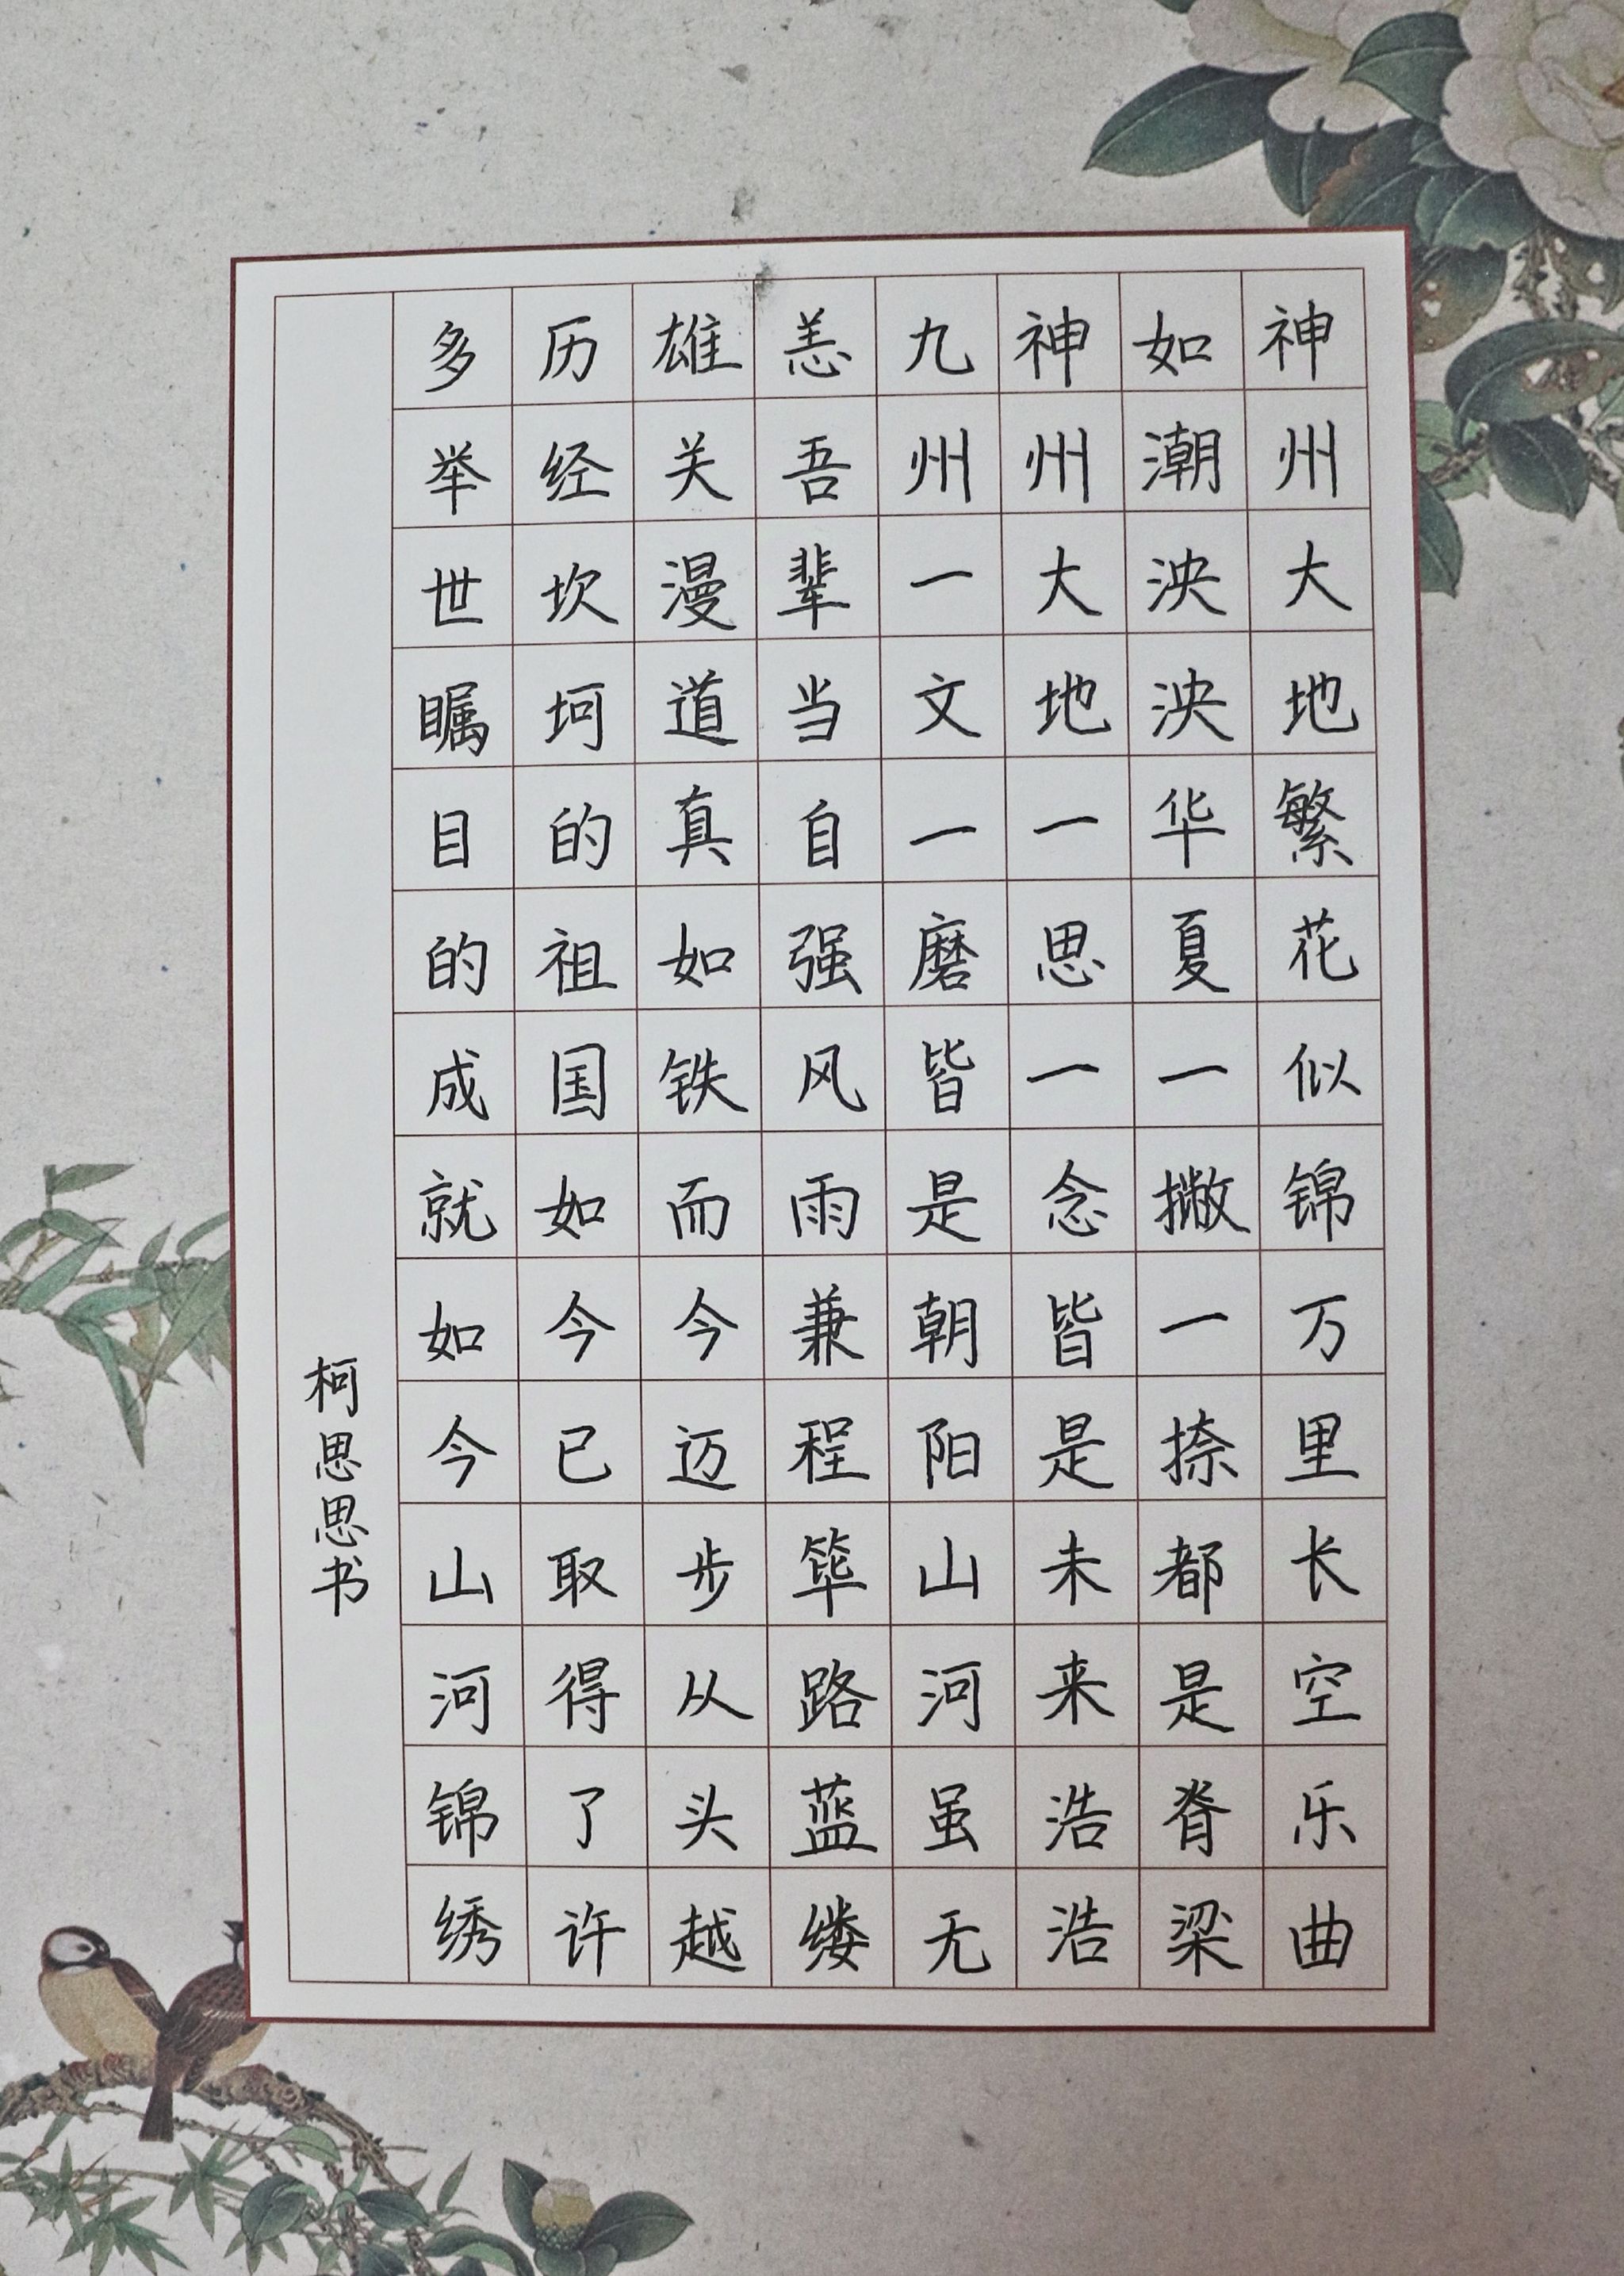 神州大地繁花似锦万里长空乐曲
如潮泱泱华夏一撇一捺都是脊梁
神州大地一思一念皆是未来浩浩
九州一文一磨皆是朝阳山河虽无
恙吾辈当自强风雨兼程筚路蓝缕
雄关漫道真如铁而今迈步从头越
历经坎坷的祖国如今已取得了许
多举世瞩目的成就如今山河锦绣
柯思思书